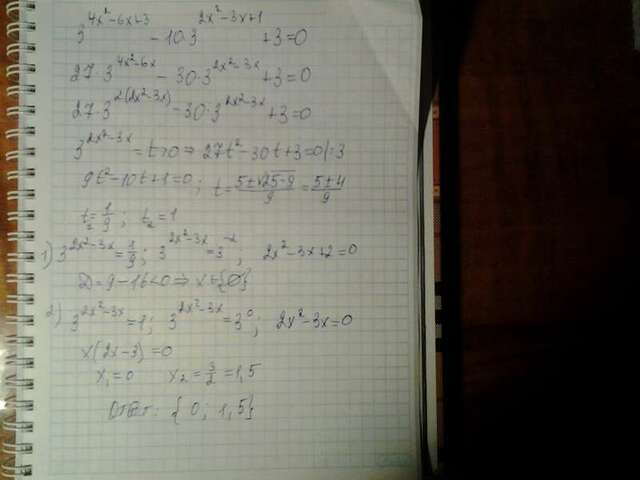 3^{4x²-6x+3} - 10·3^{2x²-3x+1} + 3 = 0
27·3^{4x²-6x} - 30·3^{2x²-3x} + 3 = 0
27·3^{2(2x²-3x)} - 30·3^{2x²-3x} + 3 = 0
3^{2x²-3x} = t > 0 ⇒ 27t² - 30t + 3 = 0 |:3
9t² - 10t + 1 = 0; t = \frac{5±√25-9}{9} = \frac{5±4}{9}
t₁ = \frac{1}{9}; t₂ = 1
1) 3^{2x²-3x} = \frac{1}{9}; 3^{2x²-3x} = 3^{-2}; 2x²-3x+2=0
D = 9-16<0 ⇒ x∈{∅}
2) 3^{2x²-3x} = 1; 3^{2x²-3x} = 3^0; 2x²-3x=0
x(2x-3)=0
x₁=0 x₂ = \frac{3}{2} = 1,5
Ответ: {0; 1,5}